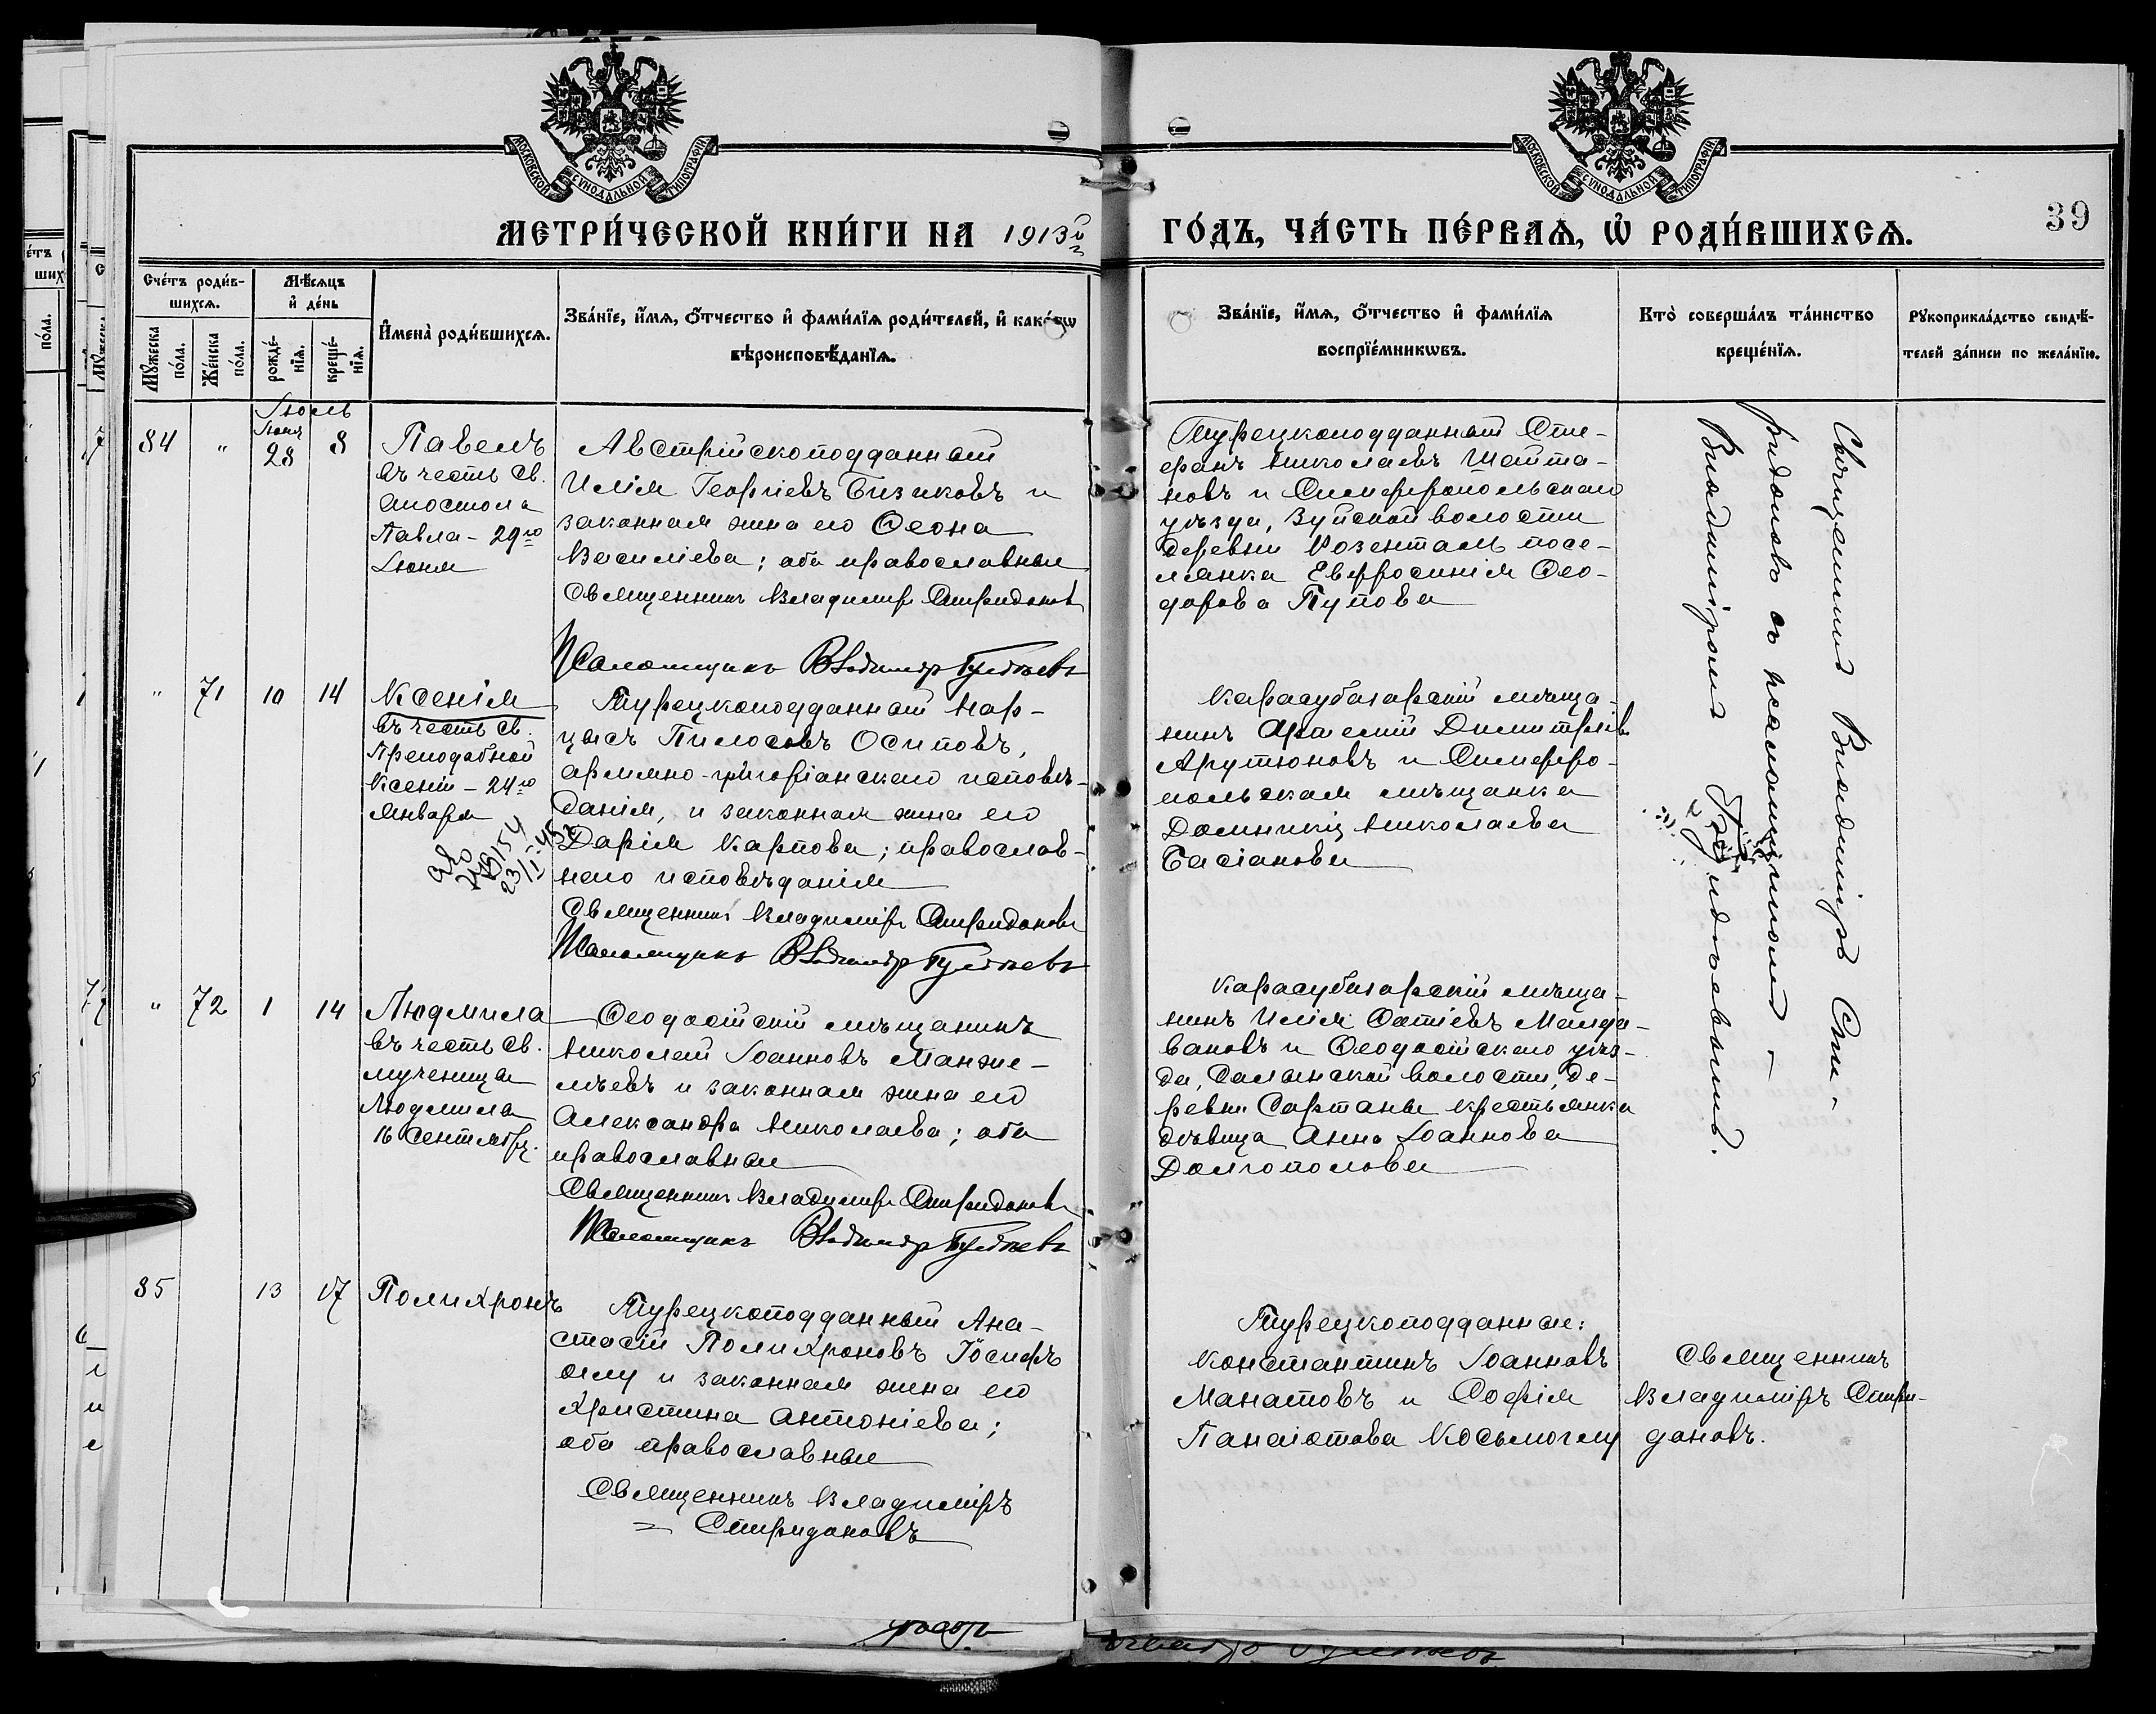 МОСКОВСКОЙ СѴНОДАЛЬНОЙ ТИПОГРАФІИ
МОСКОВСКОЙ СѴНОДАЛЬНОЙ ТИПОГРАФІИ
МЕТРИ́ЧЕСКОЙ КНИ́ГИ НА 1913й
ГО́ДЪ, ЧА́СТЬ ПЕ́РВАѦ, Ѡ҆ РОДИ́ВШИХСѦ.
39
Сче́тъ роди́в-
шихсѧ.
Мѣ́сѧцъ
и҆ де́нь
Мꙋ́жеска
по́ла.
Же́нска
по́ла.
рожде́-
нїѧ.
креще́-
нїѧ.
И҆мена̀ роди́вшихсѧ.
Зва́нїе, и҆́мѧ, ѻ҆́тчество и҆ фами́лїѧ роди́телей, и҆ како́гѡ
вѣроисповѣ́данїѧ.
Зва́нїе, и҆́мѧ, ѻ҆́тчество и҆ фами́лїѧ
воспрїе́мникѡвъ.
Кто̀ соверша́лъ та́инство
креще́нїѧ.
Рꙋкоприкла́дство свидѣ́-
телей за́писи по жела́нїю.
Іюль
84 " Іюня 28 8
Павелъ
въ честь св.
апостола
Павла - 29го
Іюня
Австрійскоподданный
Илія Георгіевъ Бизиковъ и
законная жена его Ѳеона
Василіева; оба православные
Священникъ Владимиръ Спиридоновъ
Псаломщикъ Владимир
Турецкоподданный Сте-
фанъ Николаевъ Шайта-
новъ и Симферопольскаго
уѣзда, Зуйской волости
деревни Розенталь посе-
лянка Евфросинія Ѳео-
дорова Пупова
Священникъ Владиміръ Спи-
ридоновъ съ псаломщикомъ -
Владиміромъ
" 71 10 14
Ксенія
въ честь св.
Преподобной
Ксеніи - 24го
Января
Турецкоподданный Нар-
цисъ Пилосовъ Осиповъ,
армяно-григоріанскаго исповѣ-
данія, и законная жена его
Дарія Карпова; православ-
наго исповѣданія
Священникъ Владимиръ Спиридоновъ
Псаломщикъ Владимир
Карасубазарскій мѣща-
нинъ Димитріев.
Арутюновъ и Симферо-
польская мѣщанка
Домникія Николаева
Басіанова
" 72 1 14
Людмила
въ честь св.
мученицы
Людмилы
16 Сентябр.
Ѳеодосійскій мѣщанинъ
Николай Іоанновъ Манже-
лѣевъ и законная жена его
Александра Николаева; оба
православные
Священникъ Владимиръ Спиридоновъ
Псаломщикъ Владимир
Карасубазарскій мѣща-
нинъ Илія
и Ѳеодосійскаго уѣз-
да, Салынской волости, де-
ревни Сартаны крестьянка
дѣвица Анна Іоаннова
Долгополова
85 13 17
Полихронъ
Турецкоподданный Ана-
стасій Полихроновъ Іосифъ
оглу и законная жена его
Христина Антоніева;
оба православные
Священникъ Владиміръ
= Спиридоновъ
Турецкоподданные:
Константинъ Іоанновъ
Манатовъ и Софія
Панаіотова Косьмоглу
Священникъ
Владиміръ Спири-
доновъ.